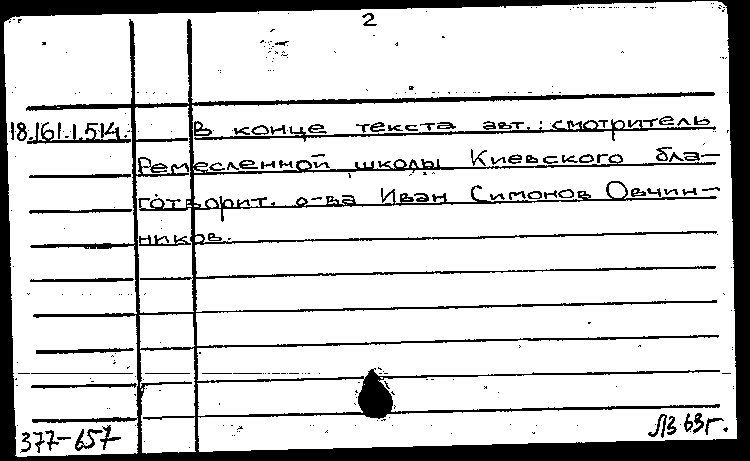 2
18.161.1.514. В конце текста авт.: смотритель
Ремесленной школы Киевского бла-
готворит. о-ва Иван Симонов Овчин-
ников.
377-657 ЛЗ 63г.